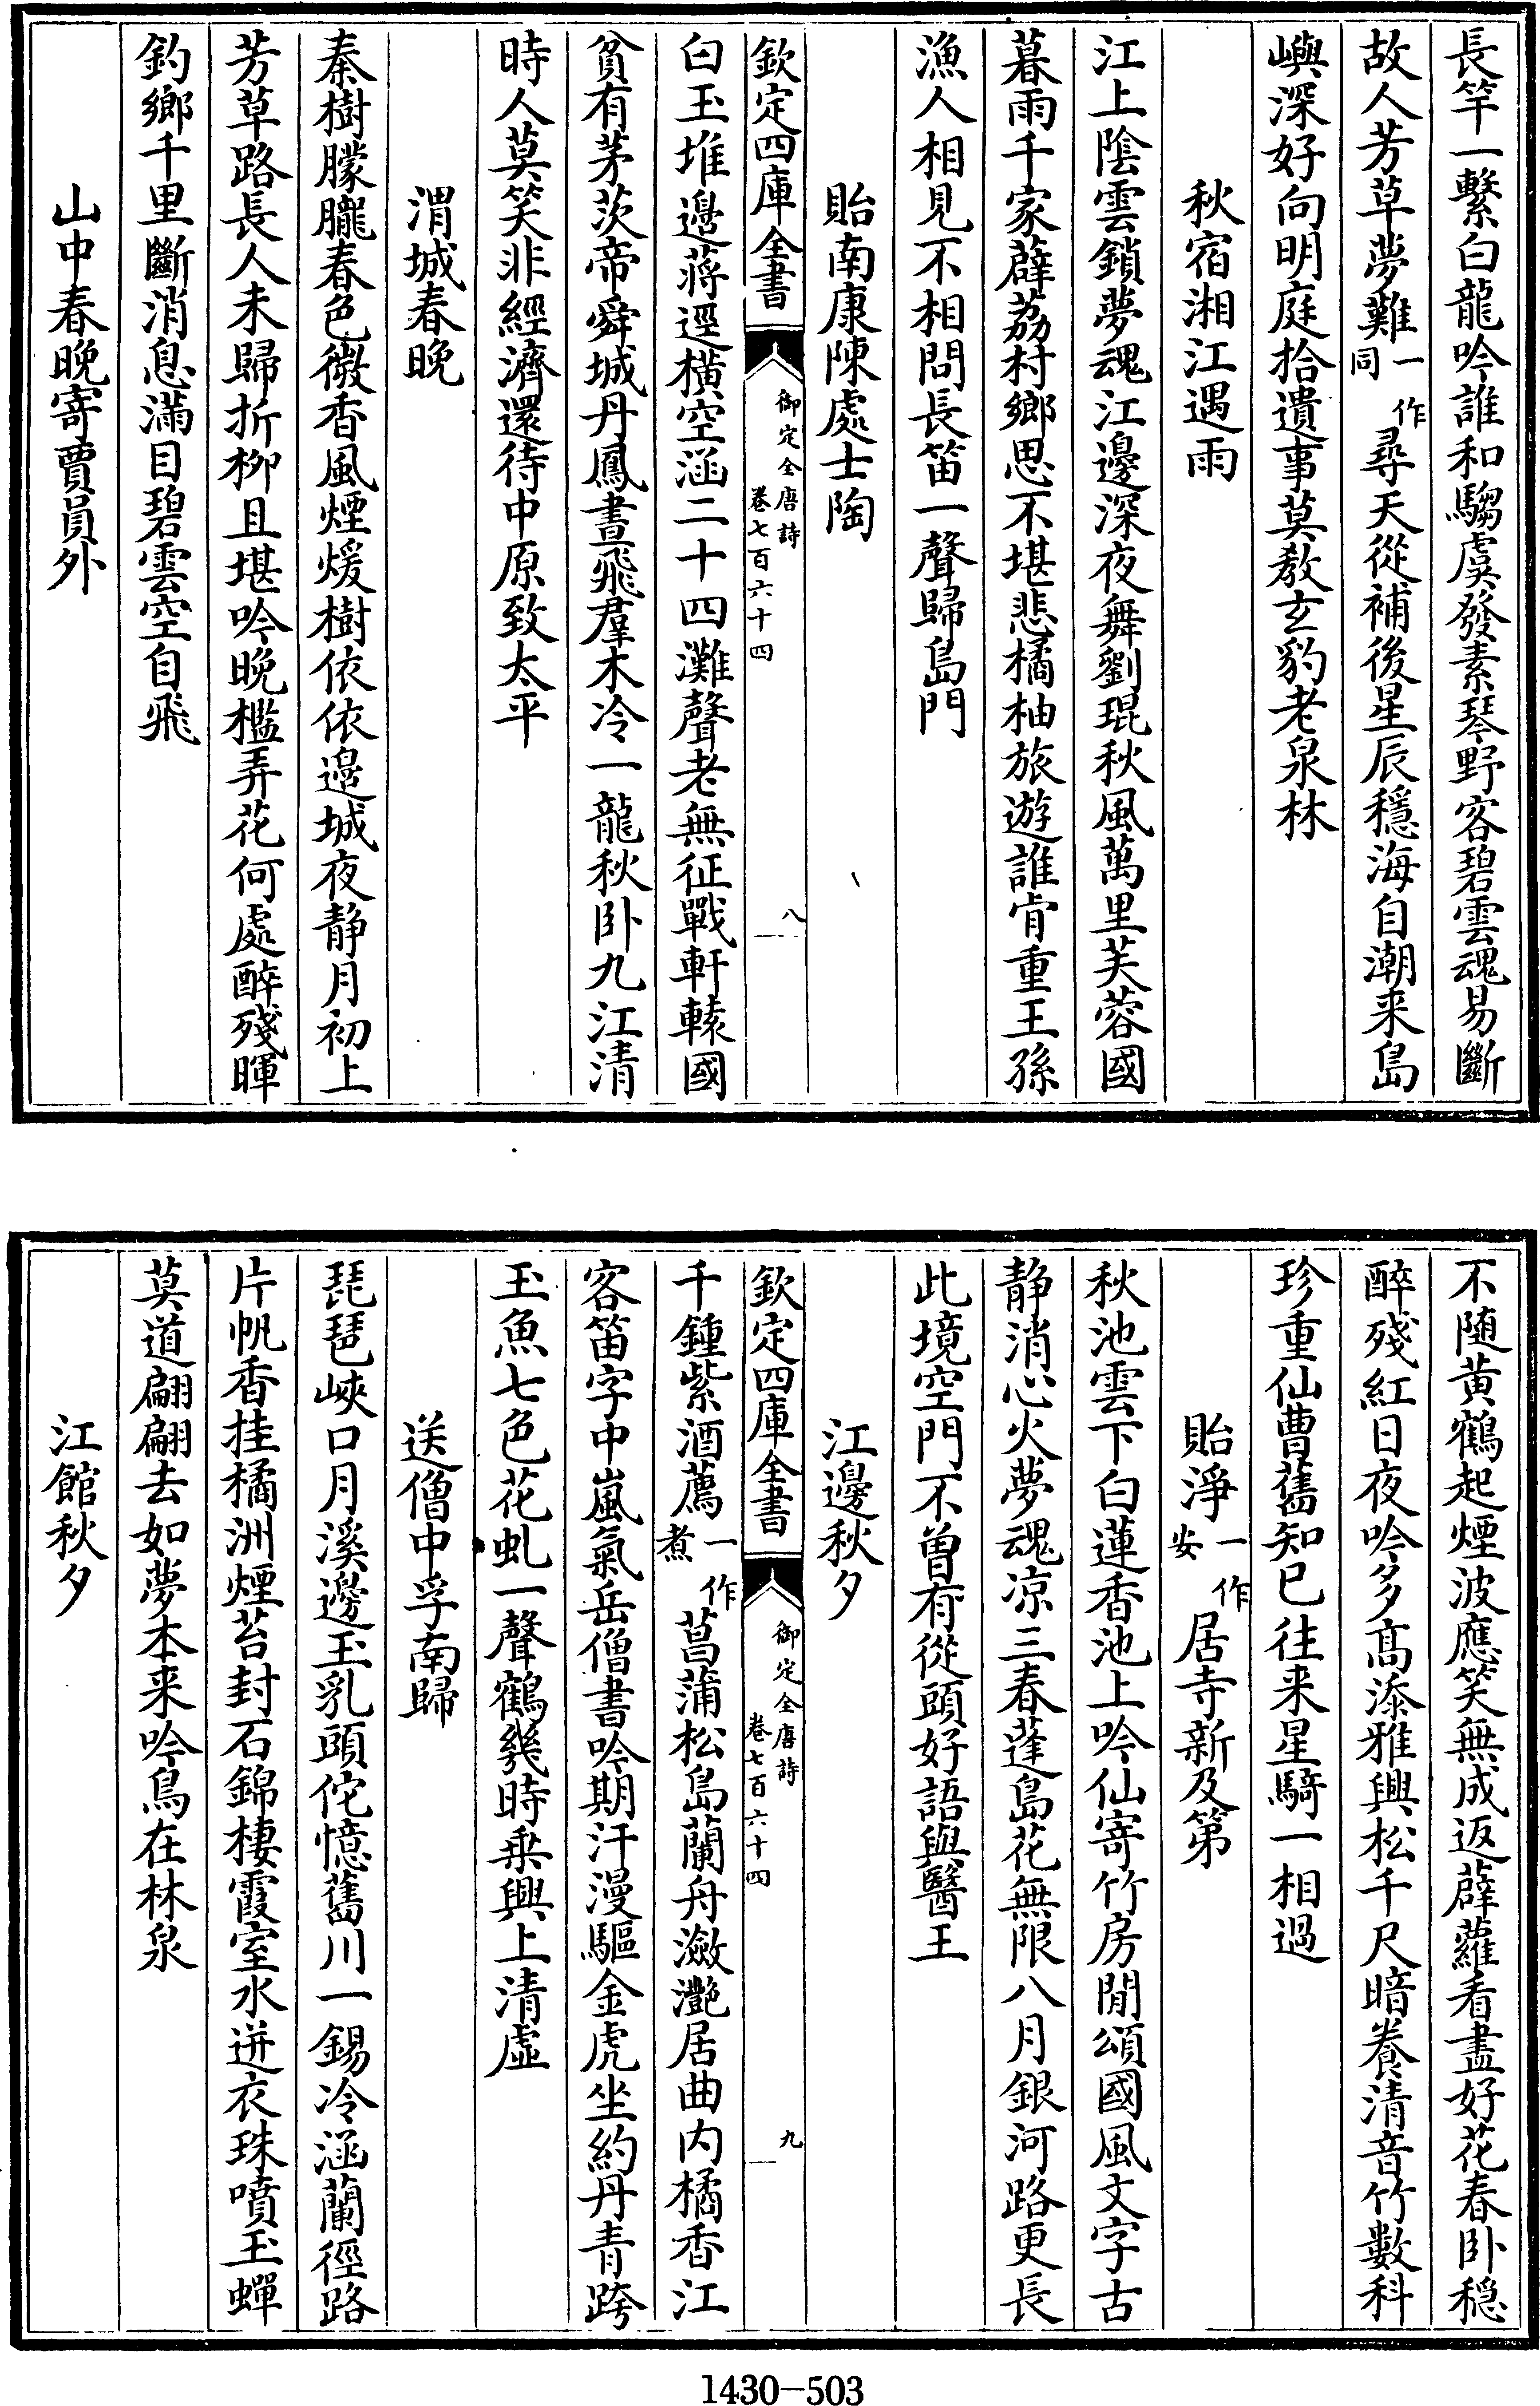 長竿一繫白龍吟誰和騶虞發素琴野客碧雲魂易斷
故人芳草夢難一作同尋天從補後星辰穩海自潮来島
嶼深好向明庭拾遺事莫教玄豹老泉林
秋宿湘江遇雨
江上陰雲鎖夢魂江邊深夜舞劉琨秋風萬里芙蓉國
暮雨千家薜荔村鄉思不堪悲橘柚旅遊誰肯重王孫
漁人相見不相問長笛一聲歸島門
貽南康陳處士陶
欽定四庫全書
御定全唐詩
卷七百六十四
八
白玉堆邊蔣逕橫空涵二十四灘聲老無征戰軒轅國
貧有茅茨帝舜城丹鳳晝飛羣木冷一龍秋卧九江清
時人莫笑非經濟還待中原致太平
渭城春晚
秦樹朦朧春色微香風煙煖樹依依邉城夜静月初上
芳草路長人未歸折柳且堪吟晚檻弄花何處醉殘暉
釣鄉千里斷消息滿目碧雲空自飛
山中春晚寄賈員外
不随黄鶴起煙波應笑無成返薜蘿看盡好花春卧穏
醉殘紅日夜吟多髙添雅興松千尺暗養清音竹數科
珍重仙曹舊知已往来星騎一相過
貽淨一作安居寺新及第
秋池雲下白蓮香池上吟仙寄竹房閒頌國風文字古
静消心火夢魂凉三春蓬島花無限八月銀河路更長
此境空門不曽有從頭好語與醫王
江邊秋夕
欽定四庫全書
御定全唐詩
卷七百六十四
九
千鍾紫酒薦一作煮菖蒲松島蘭舟瀲灔居曲内橘香江
客笛字中嵐氣岳僧書吟期汗漫驅金虎坐約丹青跨
玉魚七色花虬一聲鶴幾時乗興上清虚
送僧中孚南歸
琵琶峽口月溪邊玉乳頭佗憶舊川一錫冷涵蘭徑路
片帆香挂橘洲煙苔封石錦棲霞室水迸衣珠噴玉蟬
莫道翩翩去如夢本来吟鳥在林泉
江館秋夕
1430-503